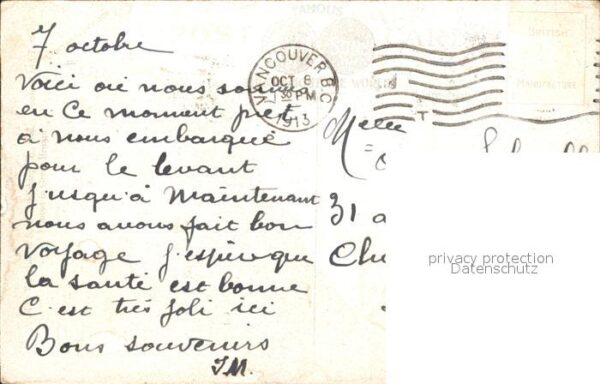 7 octobre
Voici où nous sommes
en ce moment pret
à nous embarqué
pour le levant
jusqu'à maintenant
nous avons fait bon
voyage j'espère que
la santé est bonne
C'est très joli ici
Bons souvenirs
J.M.
FAMOUS
VANCOUVER B.C.
OCT 8
PM
1913
T
BRITISH
MANUFACTURE
Melle
31 a
Che
privacy protection
Datenschutz